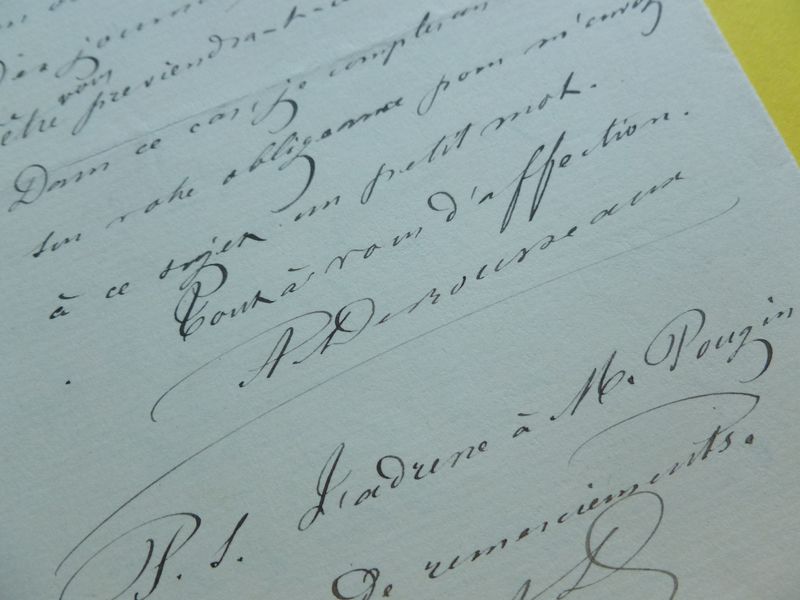 être vous previendra-t-
Dans ce cas, je compterai
sur votre obligeance pour m'envoy
à ce sujet un petit mot.
Tout à vous d'affection.
A Desrousseaux
P. S. J'adresse à M. Pougin
De remerciements.